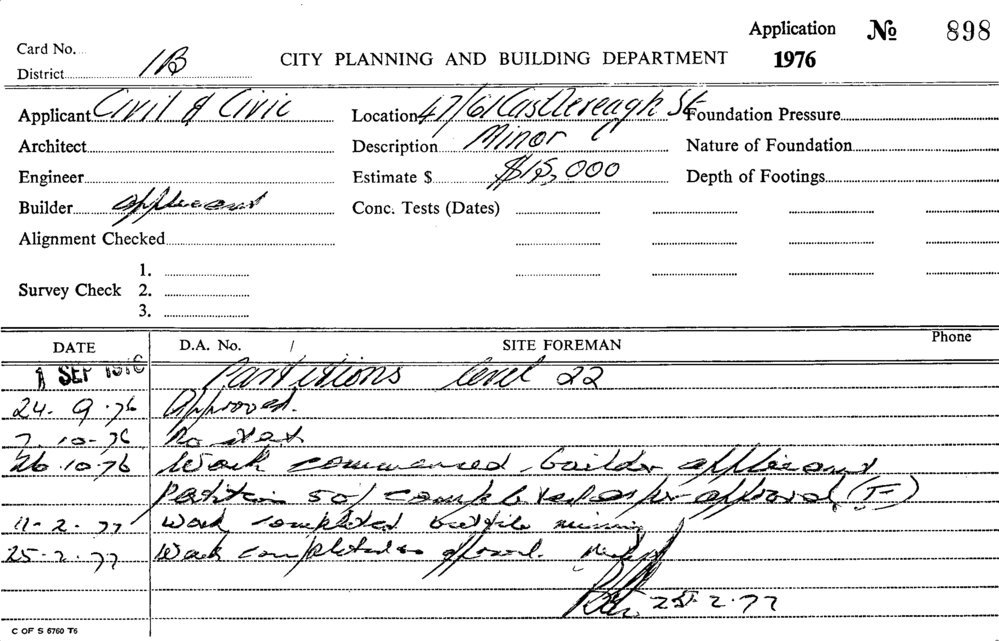 Application № 898
Card No.
1976
District 1B CITY PLANNING AND BUILDING DEPARTMENT
Applicant Civil & Civic Location 47/61 Castlereagh St Foundation Pressure
Architect Description Minor C Nature of Foundation
Engineer Estimate $ $15,000 Depth of Footings
Builder applicant Conc. Tests (Dates)
Alignment Checked
1.
Survey Check 2.
3.
DATE D.A. No. / SITE FOREMAN Phone
SEP 1976 Partitions level 22
24. 9. 76 Approved.
7. 10-76 No start
26.10.76 Work commenced builder applicant
Partition 50% completed as per approval (F)
11-2.77 Work completed
25-2.77 Work completed as approved.
25.2.77
C OF S 6760 T6